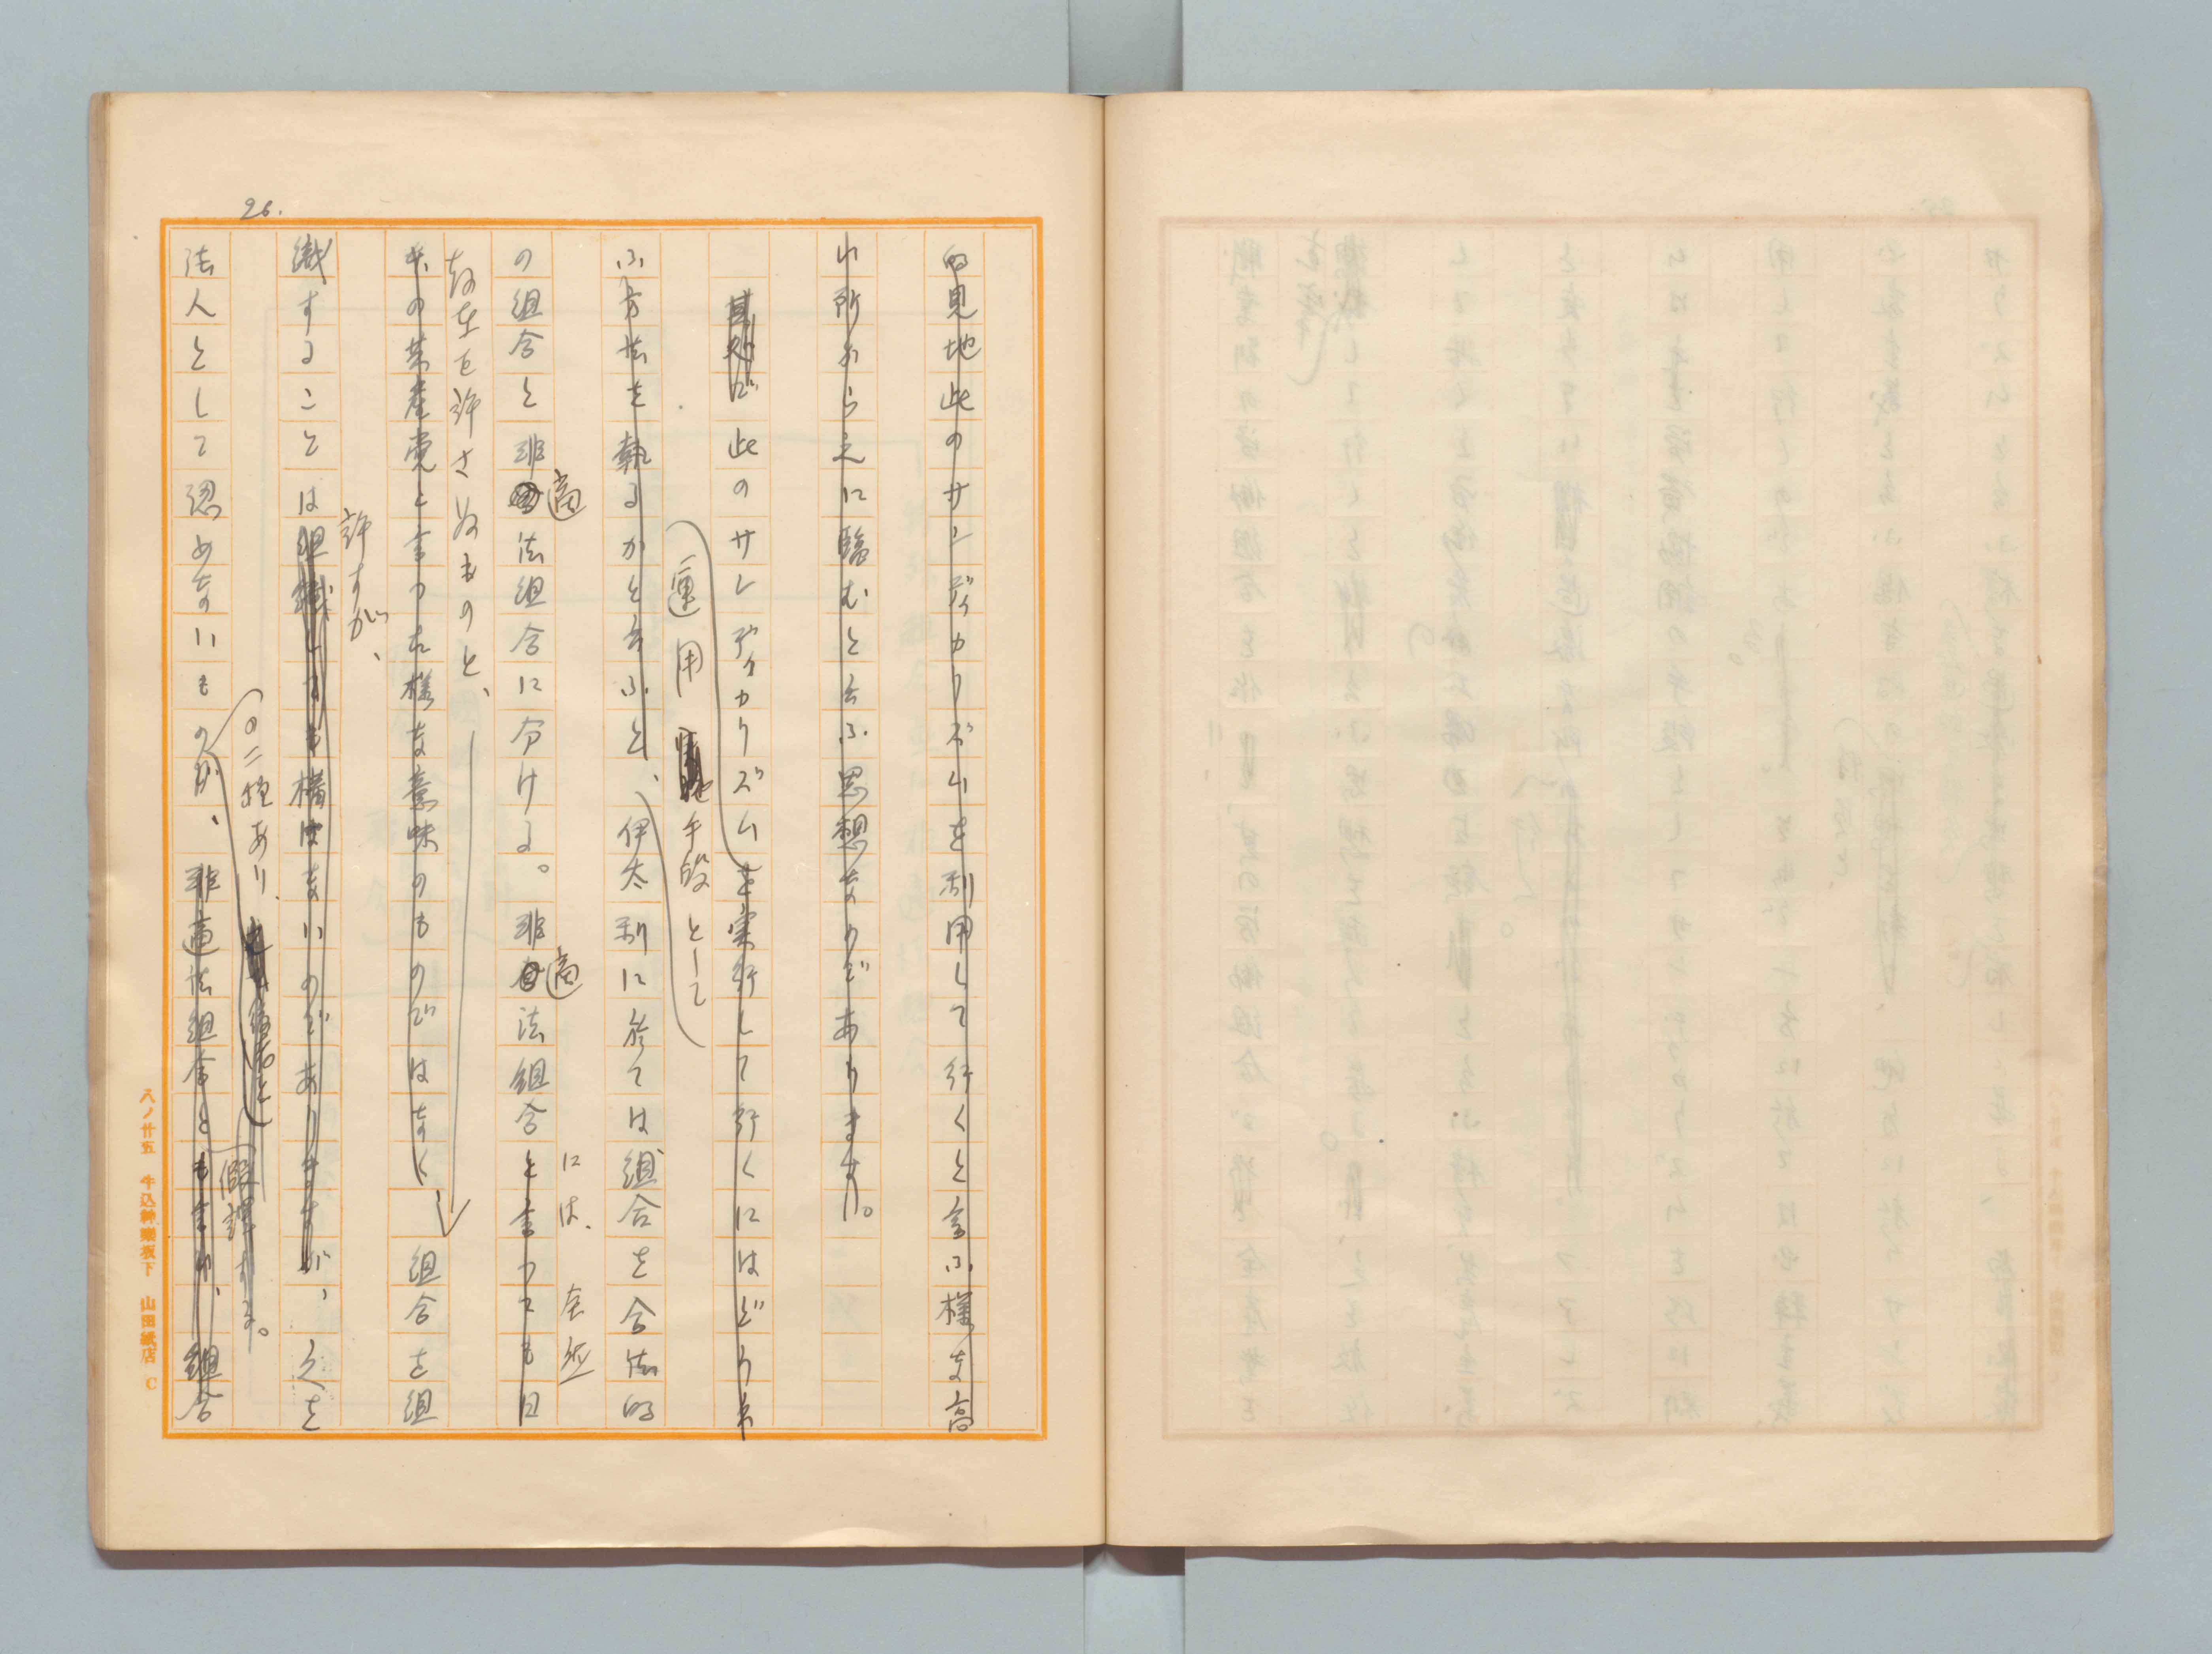 26.
的見地此のサンヂィカリズムを利用して行くと言ふ様な高
い所から之に臨むと云ふ思想なのであります。
其処で此のサンディカリズムを実行して行くにはどう云
運用手段として
ふ方法を執るかと言ふと、伊太利に於ては組合を合法的
の組合と非適法組合に分ける。非適法組合と言つても日
適
適
には、全然
存在を許さぬものと、
本の共産党と言つた様な意味のものではなく 組合を組
織することは組織しても構はないのでありますが、之を
許すが、
の二種あり、
法人として認めないものが、非適法組合とも言ひ、組合
八ノ廿五 牛込神楽坂下 山田紙店 C